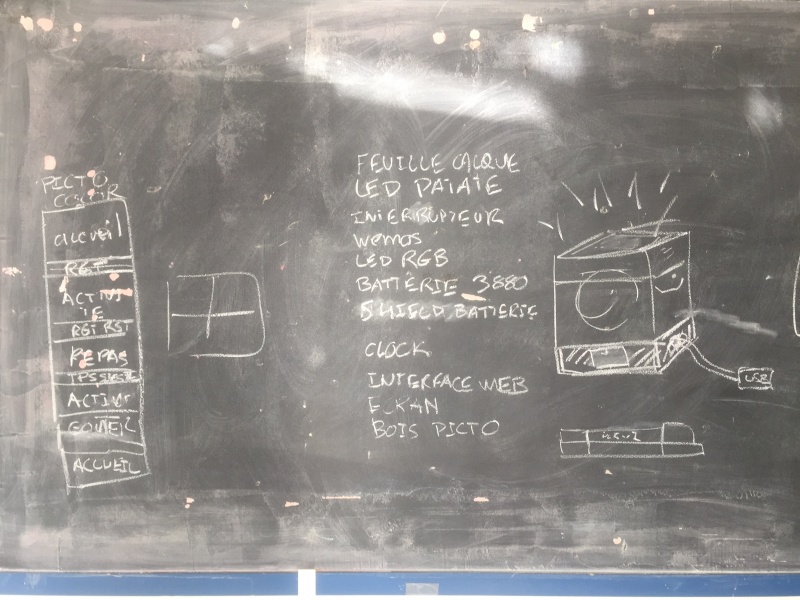 PICTO
ACCUEIL
RGT
ACTIVI
TE
RGT RST
REPAS
ACTIVI
GOUTER
ACCUEIL
FEUILLE CALQUE
LED PATATE
INTERRUPTEUR
wemos
LED RGB
BATTERIE 3880
SHIELD BATTERIE
CLOCK
INTERFACE WEB
ECRAN
BOIS PICTO
USB